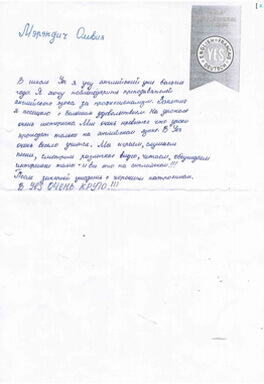 Мэрэндич Оливия
YES
В школе Yes я учу английский уже больше
года. Я могу поблагодарить преподавателей
английского языка за профессионализм. Занятия
я посещаю с большим удовольствием. На уроках
очень интересно. Мне очень нравится что урок
проходит только на английском языке. В Yes
очень весело учиться. Мы играем, слушаем
песни, смотрим различные видео, читаем, обсуждаем
интересные темы - и все это на английском!!!
После занятий уходишь с хорошим настроением.
В YES ОЧЕНЬ КРУТО!!!